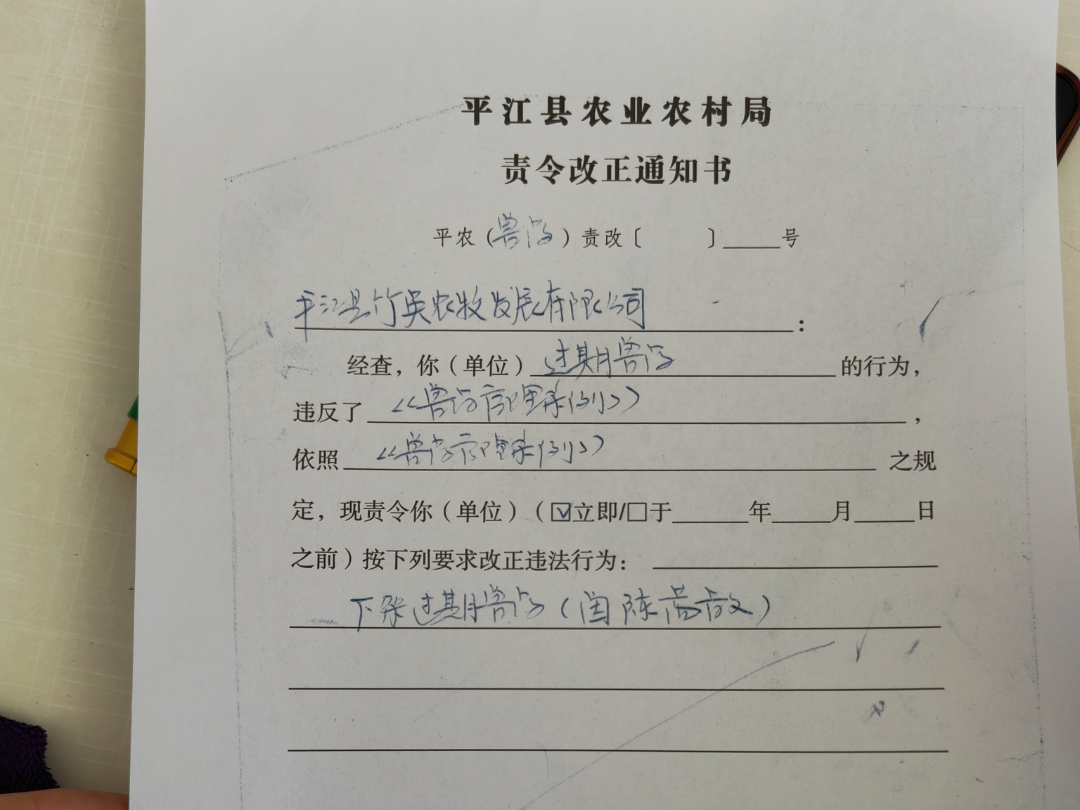 平江县农业农村局
责令改正通知书
平农（兽药）责改〔 〕____号
平江县竹吴农牧发展有限公司：
经查，你（单位）过期兽药的行为，
违反了《兽药管理条例》，
依照《兽药管理条例》之规
定，现责令你（单位）（☑立即/□于____年____月____日
之前）按下列要求改正违法行为：
下架过期兽药（